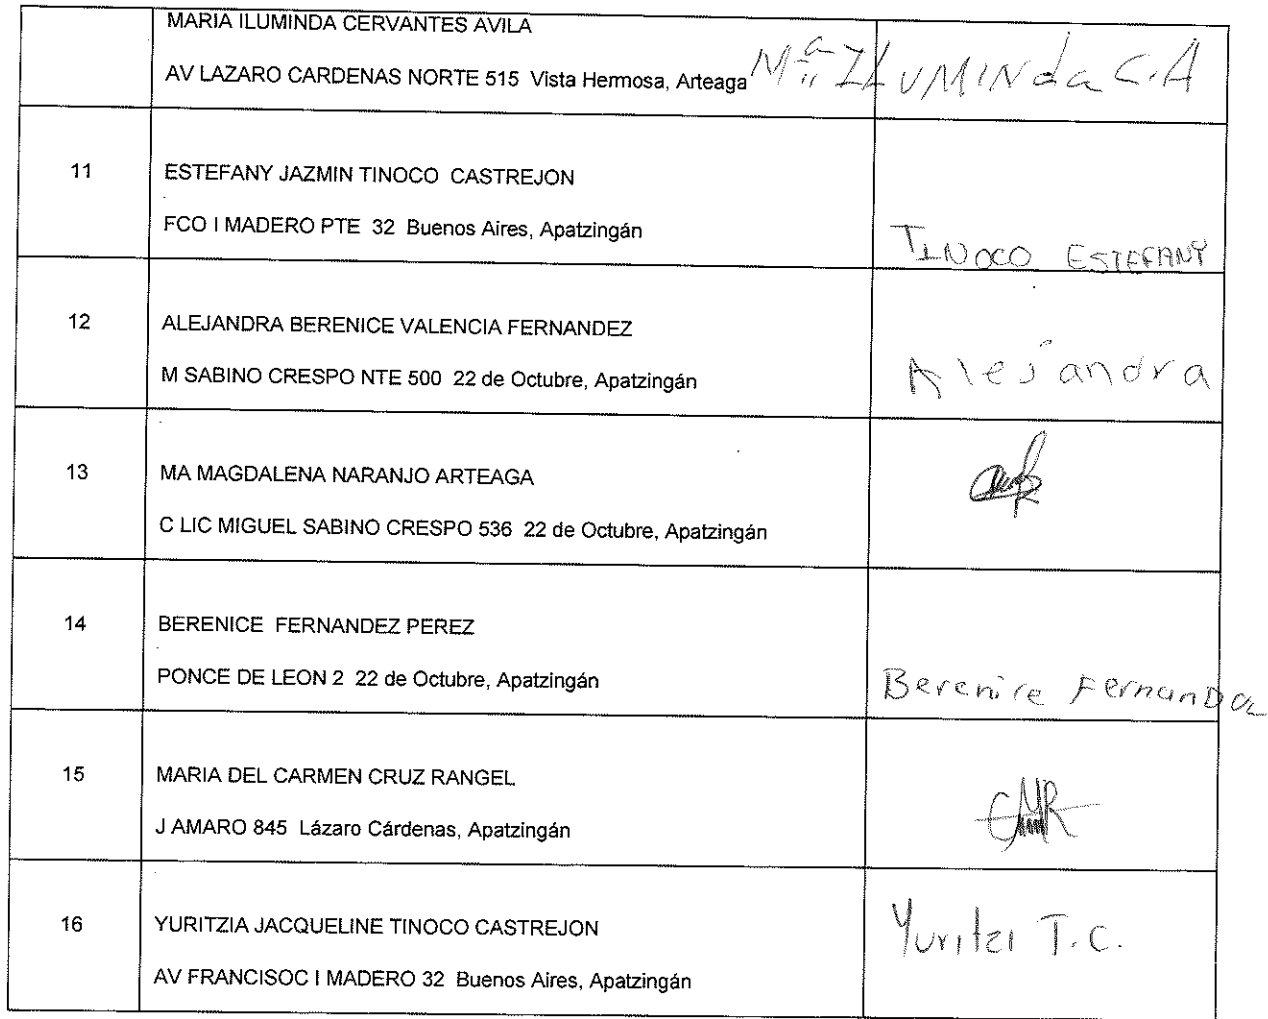 MARIA ILUMINDA CERVANTES AVILA
AV LAZARO CARDENAS NORTE 515 Vista Hermosa, Arteaga
Mª ILUMINda C.A
11
ESTEFANY JAZMIN TINOCO CASTREJON
FCO I MADERO PTE 32 Buenos Aires, Apatzingán
TINOCO ESTEFANY
12
ALEJANDRA BERENICE VALENCIA FERNANDEZ
M SABINO CRESPO NTE 500 22 de Octubre, Apatzingán
Alejandra
13
MA MAGDALENA NARANJO ARTEAGA
C LIC MIGUEL SABINO CRESPO 536 22 de Octubre, Apatzingán
14
BERENICE FERNANDEZ PEREZ
PONCE DE LEON 2 22 de Octubre, Apatzingán
Berenice
15
MARIA DEL CARMEN CRUZ RANGEL
J AMARO 845 Lázaro Cárdenas, Apatzingán
16
YURITZIA JACQUELINE TINOCO CASTREJON
AV FRANCISOC I MADERO 32 Buenos Aires, Apatzingán
Yuritzi T.C.